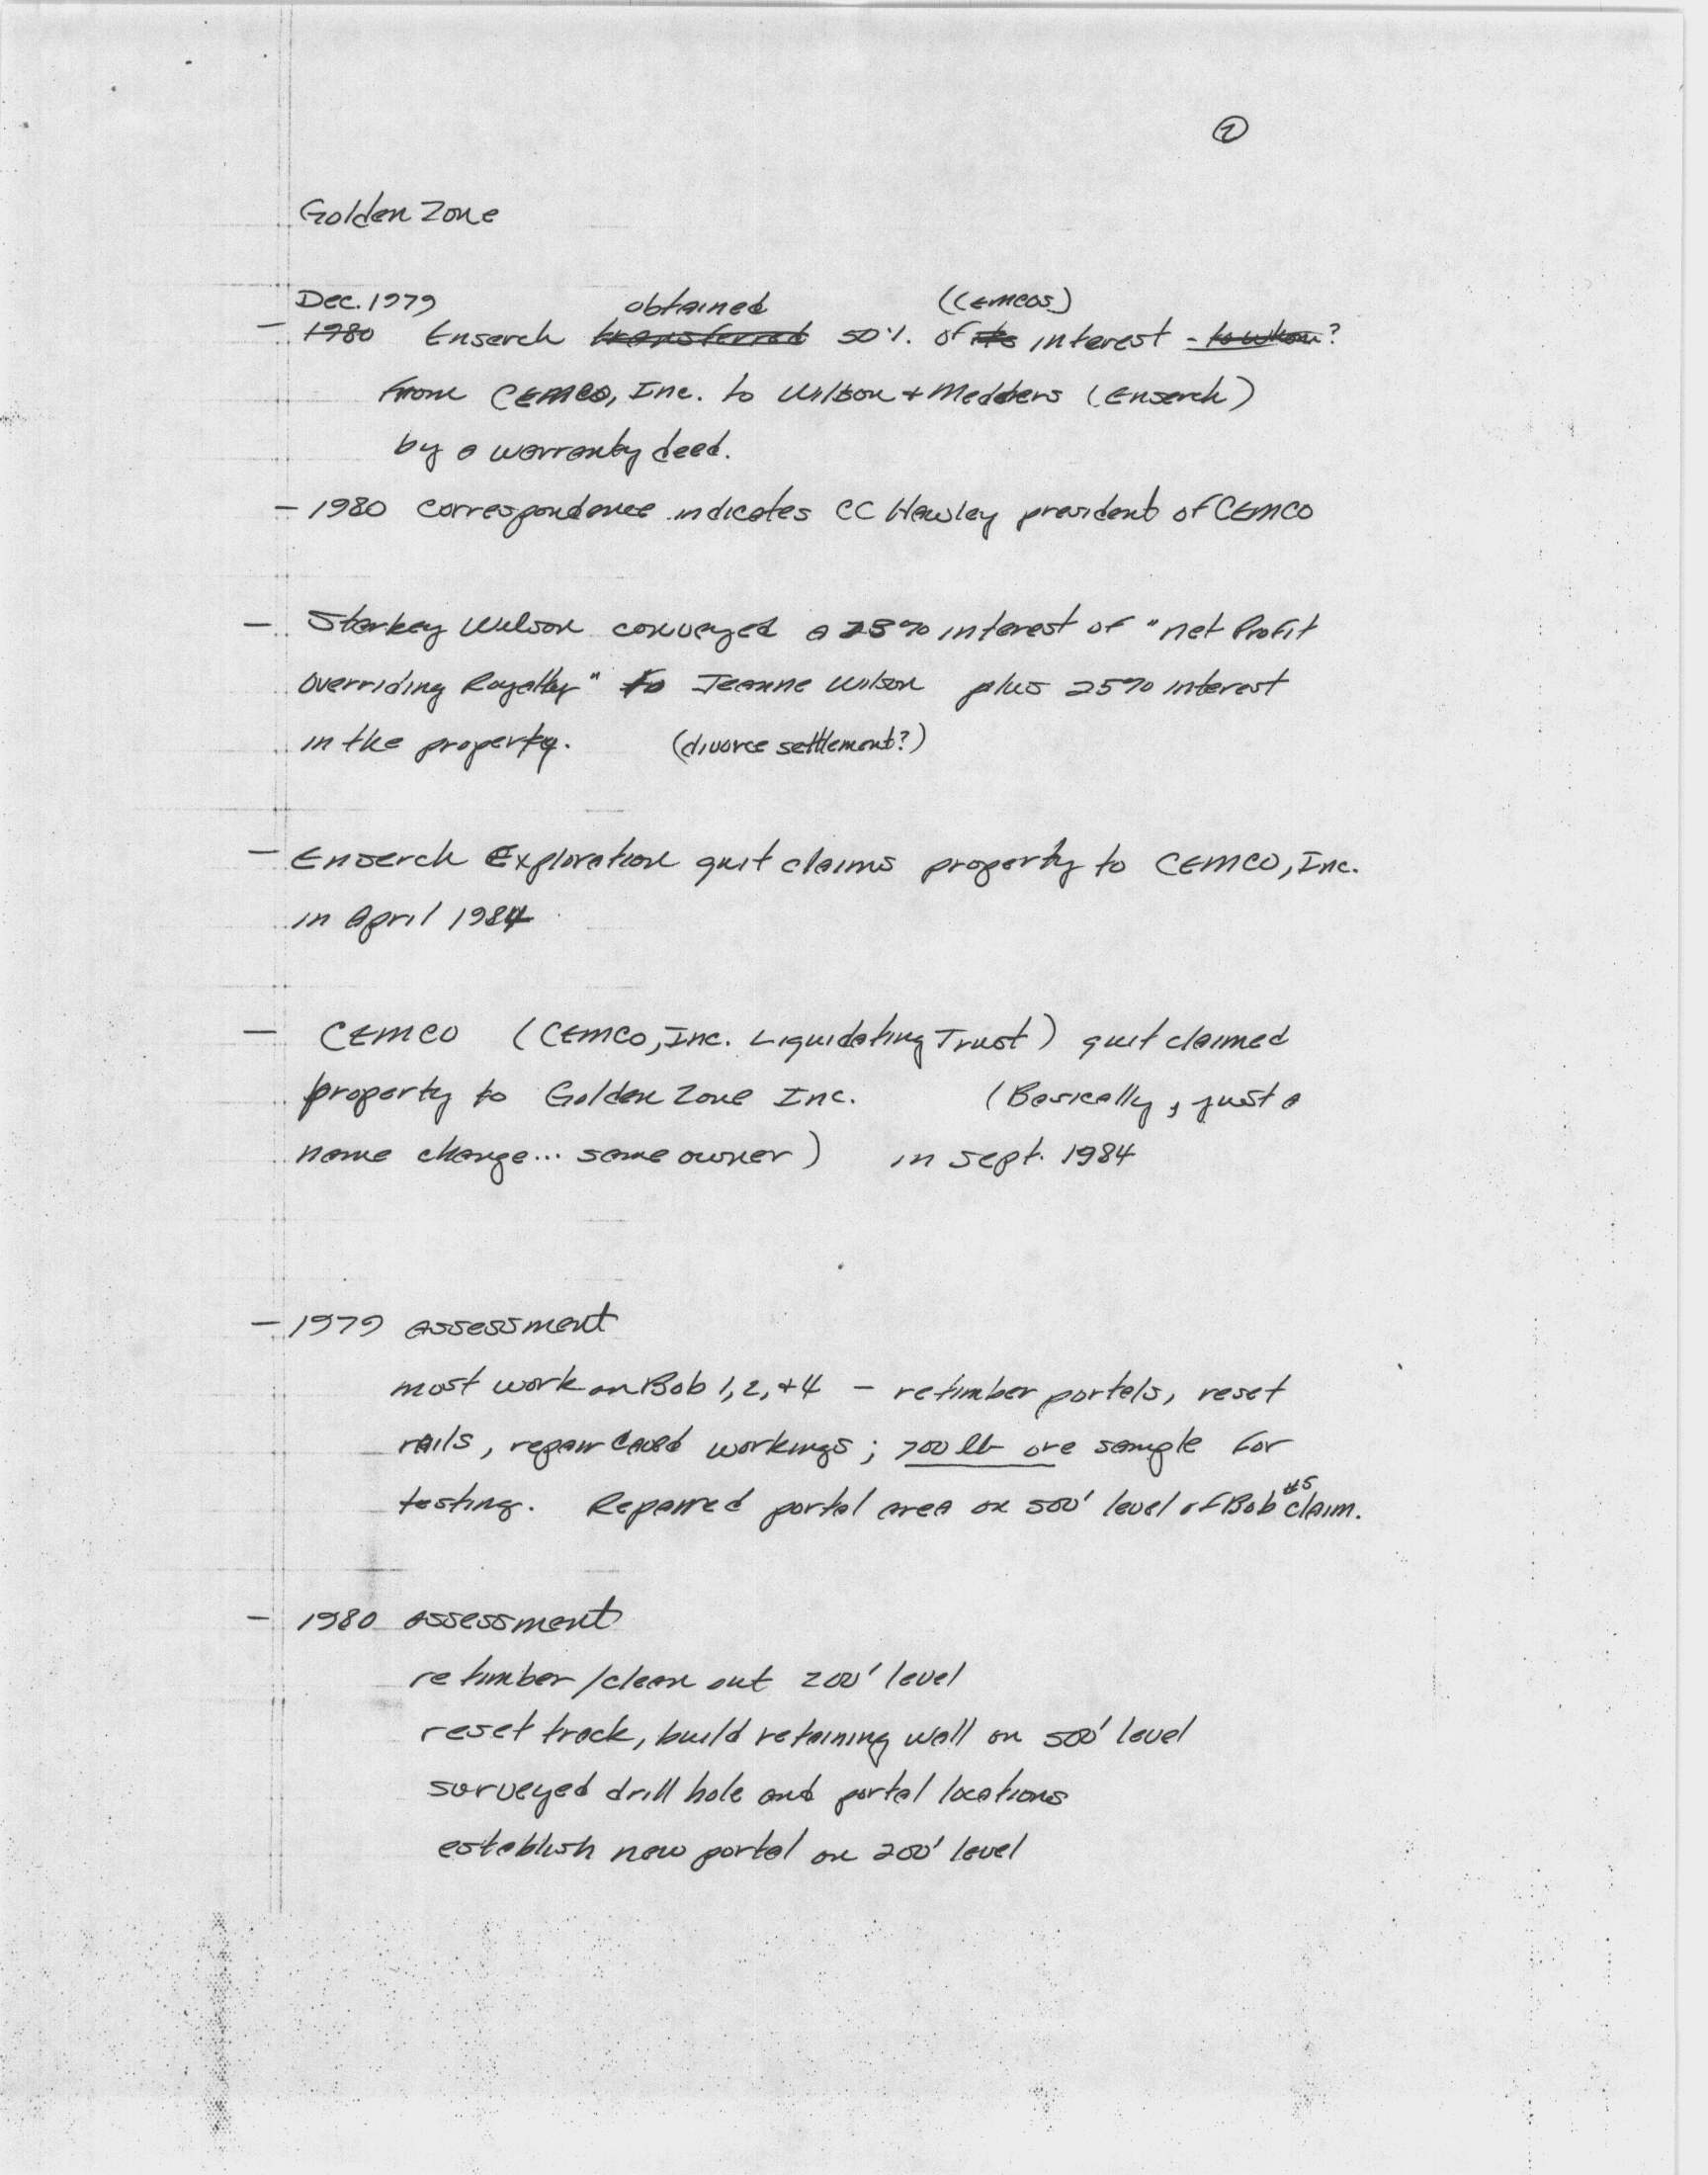 ②
Golden Zone
Dec. 1979 obtained (CEMCOS)
- 1980 Enserch transferred 50% of its interest - to whom?
From CEMCO, Inc. to Wilson + Medders (Enserch)
by a warranty deed.
- 1980 correspondence indicates CC Hawley president of CEMCO
- Starkey Wilson conveyed a 25% interest of "net Profit
Overriding Royalty" to Jeanne Wilson plus 25% interest
in the property. (divorce settlement?)
- Enserch Exploration quit claims property to CEMCO, Inc.
in April 1984
- CEMCO (CEMCO, Inc. Liquidating Trust) quit claimed
property to Golden Zone Inc. (Basically, just a
name change... same owner) in Sept. 1984
- 1979 assessment
most work on Bob 1, 2, + 4 - retimber portals, reset
rails, repair caved workings; 700 lb ore sample for
testing. Repaired portal area on 500' level of Bob #5 claim.
- 1980 assessment
retimber/clean out 200' level
reset track, build retaining wall on 500' level
surveyed drill hole and portal locations
establish new portal on 200' level